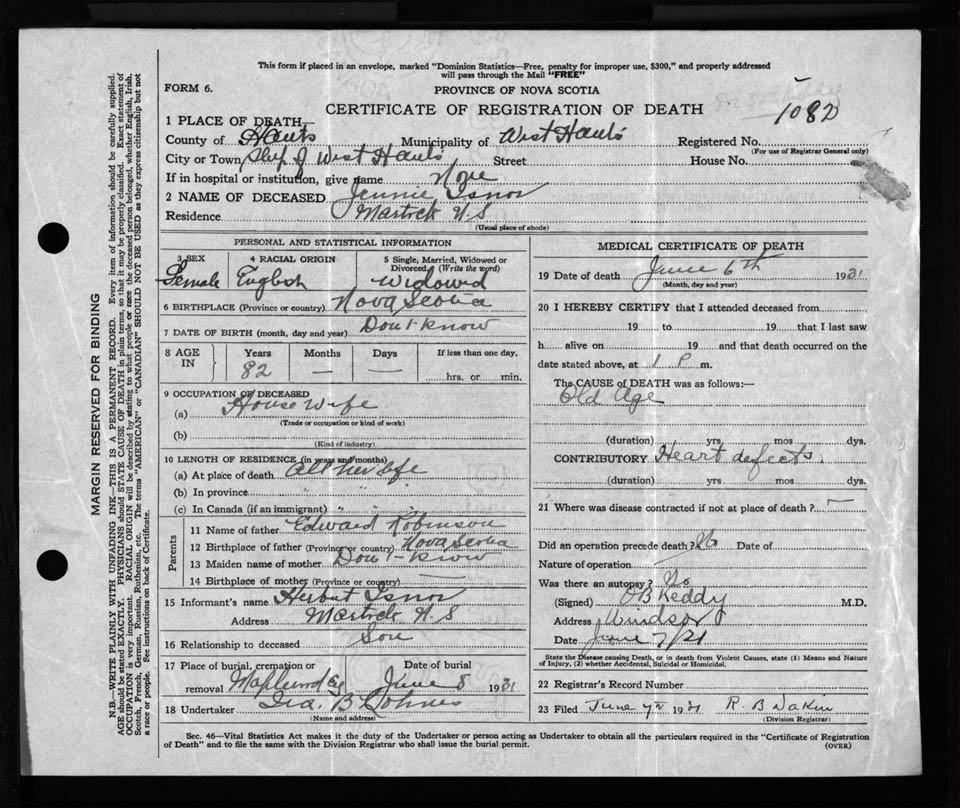 This form if placed in an envelope, marked "Dominion Statistics—Free, penalty for improper use, $300," and properly addressed
will pass through the Mail "FREE"
FORM 6.
PROVINCE OF NOVA SCOTIA
CERTIFICATE OF REGISTRATION OF DEATH
1082
1 PLACE OF DEATH—
County of Hants Municipality of West Hants Registered No.
(For use of Registrar General only)
City or Town West Hants Street House No.
If in hospital or institution, give name None
2 NAME OF DECEASED Jennie Isnor
Residence N.S
(Usual place of abode)
PERSONAL AND STATISTICAL INFORMATION
3 SEX 4 RACIAL ORIGIN 5 Single, Married, Widowed or
Divorced (Write the word)
Female English Widowed
6 BIRTHPLACE (Province or country) Nova Scotia
7 DATE OF BIRTH (month, day and year) Don't know
8 AGE IN Years Months Days If less than one day,
82 — — hrs. or min.
9 OCCUPATION OF DECEASED
(a) House wife
(Trade or occupation or kind of work)
(b)
(Kind of industry)
10 LENGTH OF RESIDENCE (in years and months)
(a) At place of death All her life
(b) In province " " "
(c) In Canada (if an immigrant) " " "
Parents
11 Name of father Edward Robinson
12 Birthplace of father (Province or country) Nova Scotia
13 Maiden name of mother Don't know
14 Birthplace of mother (Province or country) —
15 Informant's name Herbert Isnor
Address N.S
16 Relationship to deceased Son
17 Place of burial, cremation or Date of burial
removal June 8 1931
18 Undertaker
(Name and address)
MEDICAL CERTIFICATE OF DEATH
19 Date of death June 6th 1931
(Month, day and year)
20 I HEREBY CERTIFY that I attended deceased from
19 to 19 that I last saw
h alive on 19 and that death occurred on the
date stated above, at 1 P m.
The CAUSE OF DEATH was as follows:—
Old Age
(duration) yrs. mos. dys.
CONTRIBUTORY Heart defects.
(duration) yrs. mos. dys.
21 Where was disease contracted if not at place of death? —
Did an operation precede death? No Date of
Nature of operation
Was there an autopsy? No
(Signed) O B Keddy M.D.
Address Windsor
Date June 7/31
State the Disease causing Death, or in death from Violent Causes, state (1) Means and Nature
of Injury, (2) whether Accidental, Suicidal or Homicidal.
22 Registrar's Record Number
23 Filed June 7th 1931 R. B Dakin
(Division Registrar)
Sec. 46—Vital Statistics Act makes it the duty of the Undertaker or person acting as Undertaker to obtain all the particulars required in the "Certificate of Registration
of Death" and to file the same with the Division Registrar who shall issue the burial permit.
(OVER)
MARGIN RESERVED FOR BINDING
N.B.—WRITE PLAINLY WITH UNFADING INK—THIS IS A PERMANENT RECORD. Every item of information should be carefully supplied.
AGE should be stated EXACTLY. PHYSICIANS should STATE CAUSE OF DEATH in plain terms, so that it may be properly classified. Exact statement of
OCCUPATION is very important. RACIAL ORIGIN will be described by stating to what people or race the deceased person belonged, whether English, Irish,
Scotch, French, German, Russian, Ruthenian, etc. The terms "AMERICAN" or "CANADIAN" SHOULD NOT BE USED as they express citizenship but not
a race or people. See instructions on back of Certificate.